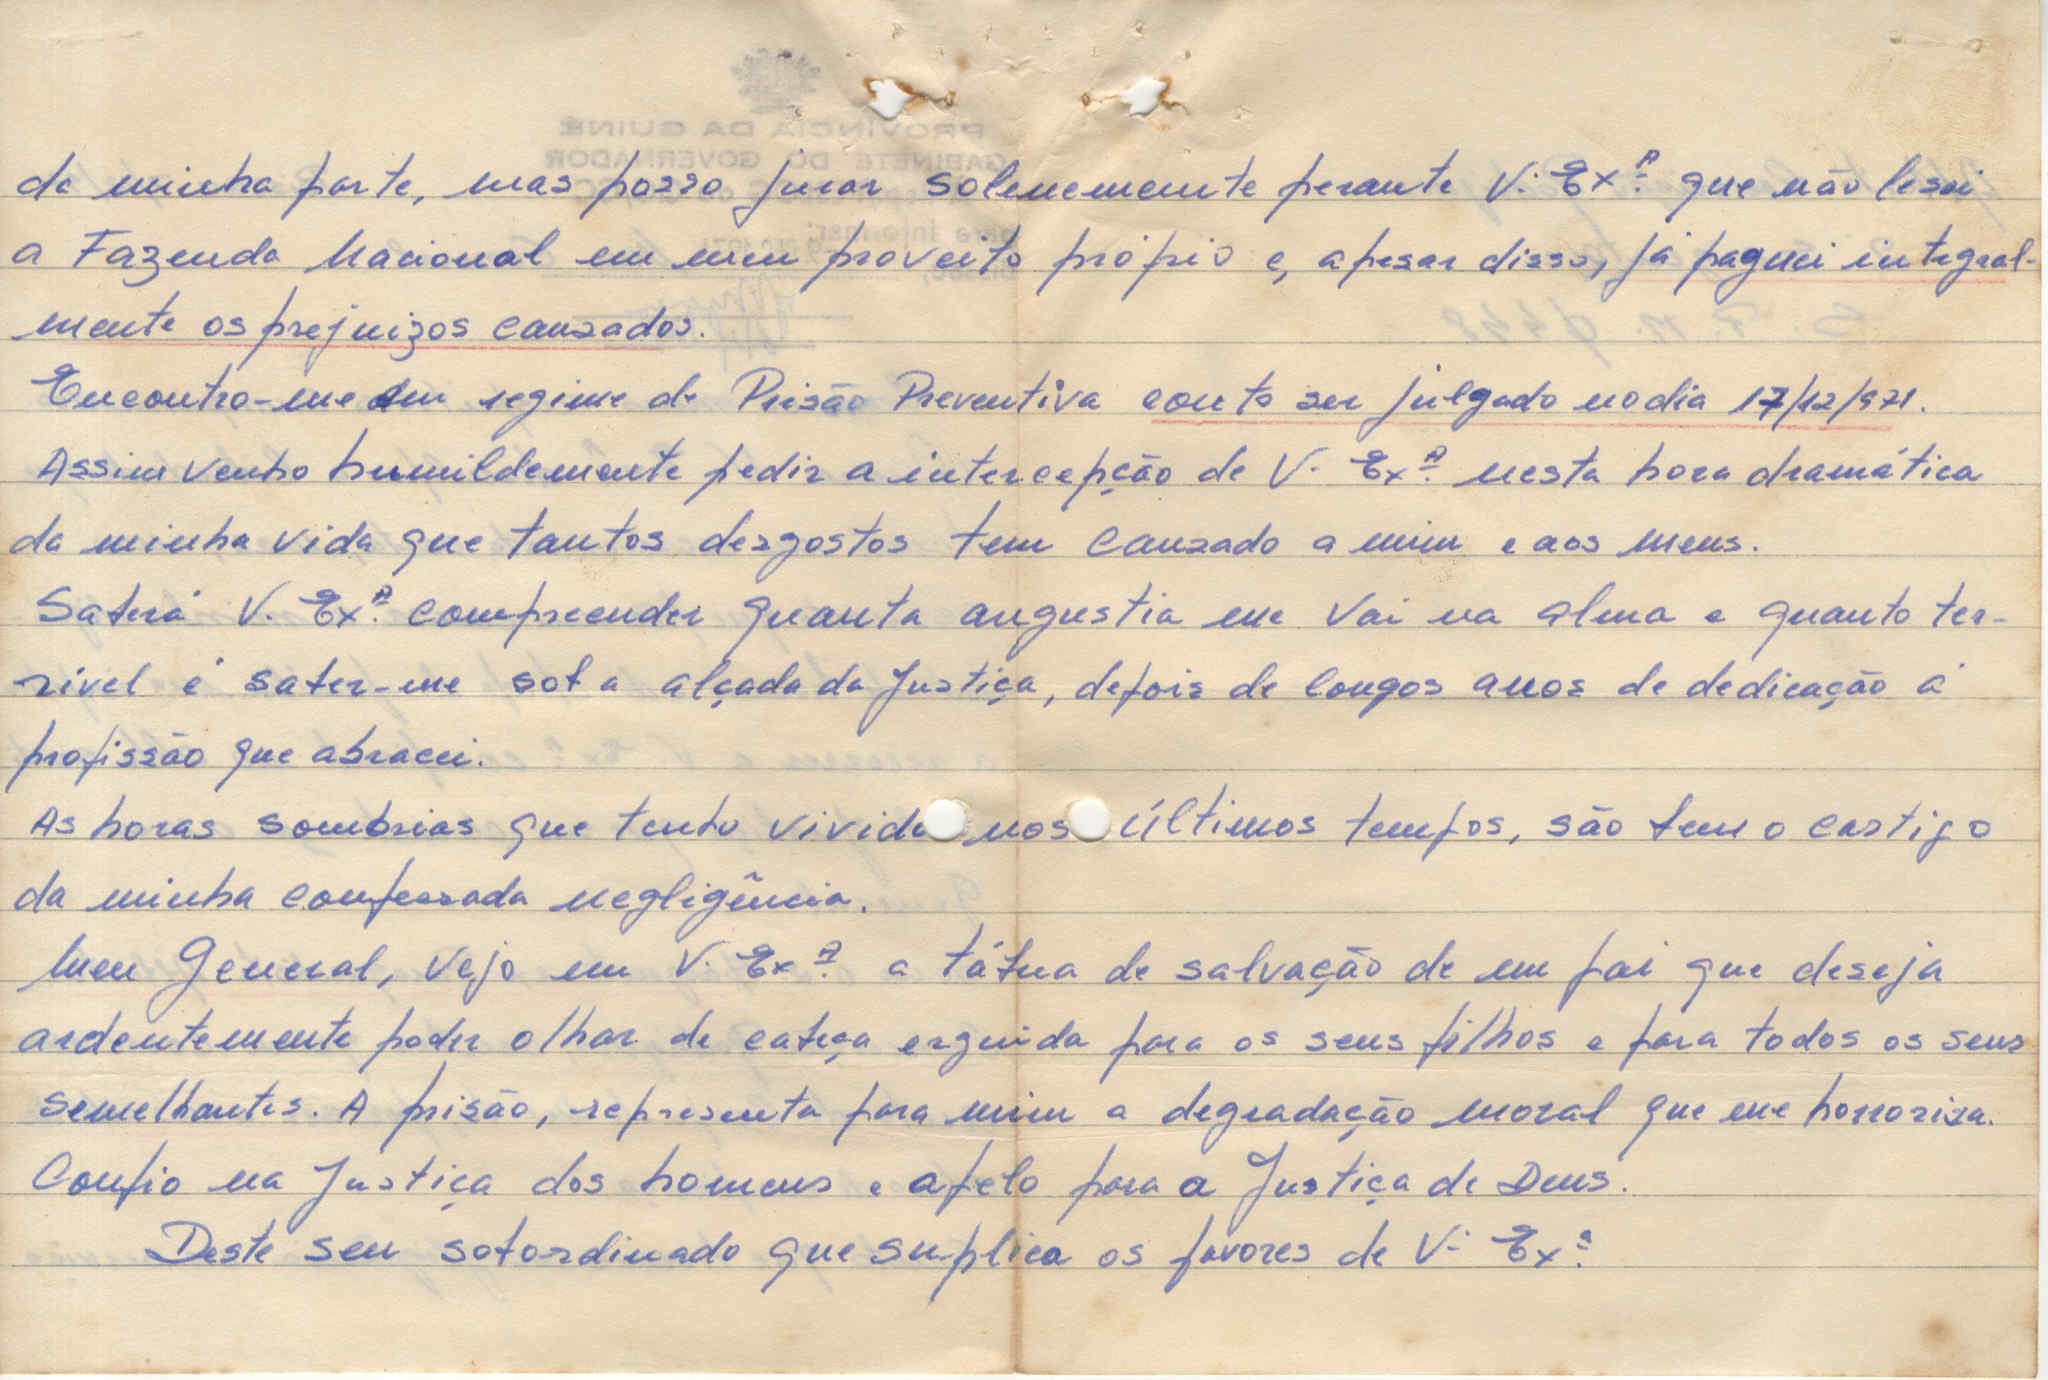 PROVINCIA DA GUINÉ
GABINETE DO GOVERNADOR
de minha parte, mas posso jurar solenemente perante V. Exª. que não lesei
a Fazenda Nacional em meu proveito próprio e, apesar disso, já paguei integral-
mente os prejuizos causados.
Encontro-me em regime de Prisão Preventiva conto ser julgado no dia 17/12/971.
Assim venho humildemente pedir a intercepção de V. Exª. nesta hora dramática
da minha vida que tantos desgostos tem causado a mim e aos meus.
Saberá V. Exª. compreender quanta angustia me vai na alma e quanto ter-
rivel é saber-me sob a alçada da Justiça, depois de longos anos de dedicação á
profissão que abracei.
As horas sombrias que tenho vivido nos últimos tempos, são bem o castigo
da minha confessada negligência.
Meu General, vejo em V. Exª. a tábua de salvação de um pai que deseja
ardentemente poder olhar de cabeça erguida para os seus filhos e para todos os seus
semelhantes. A prisão, representa para mim a degradação moral que me horroriza.
Confio na Justiça dos homens e apelo para a Justiça de Deus.
Deste seu subordinado que suplica os favores de V. Exª.